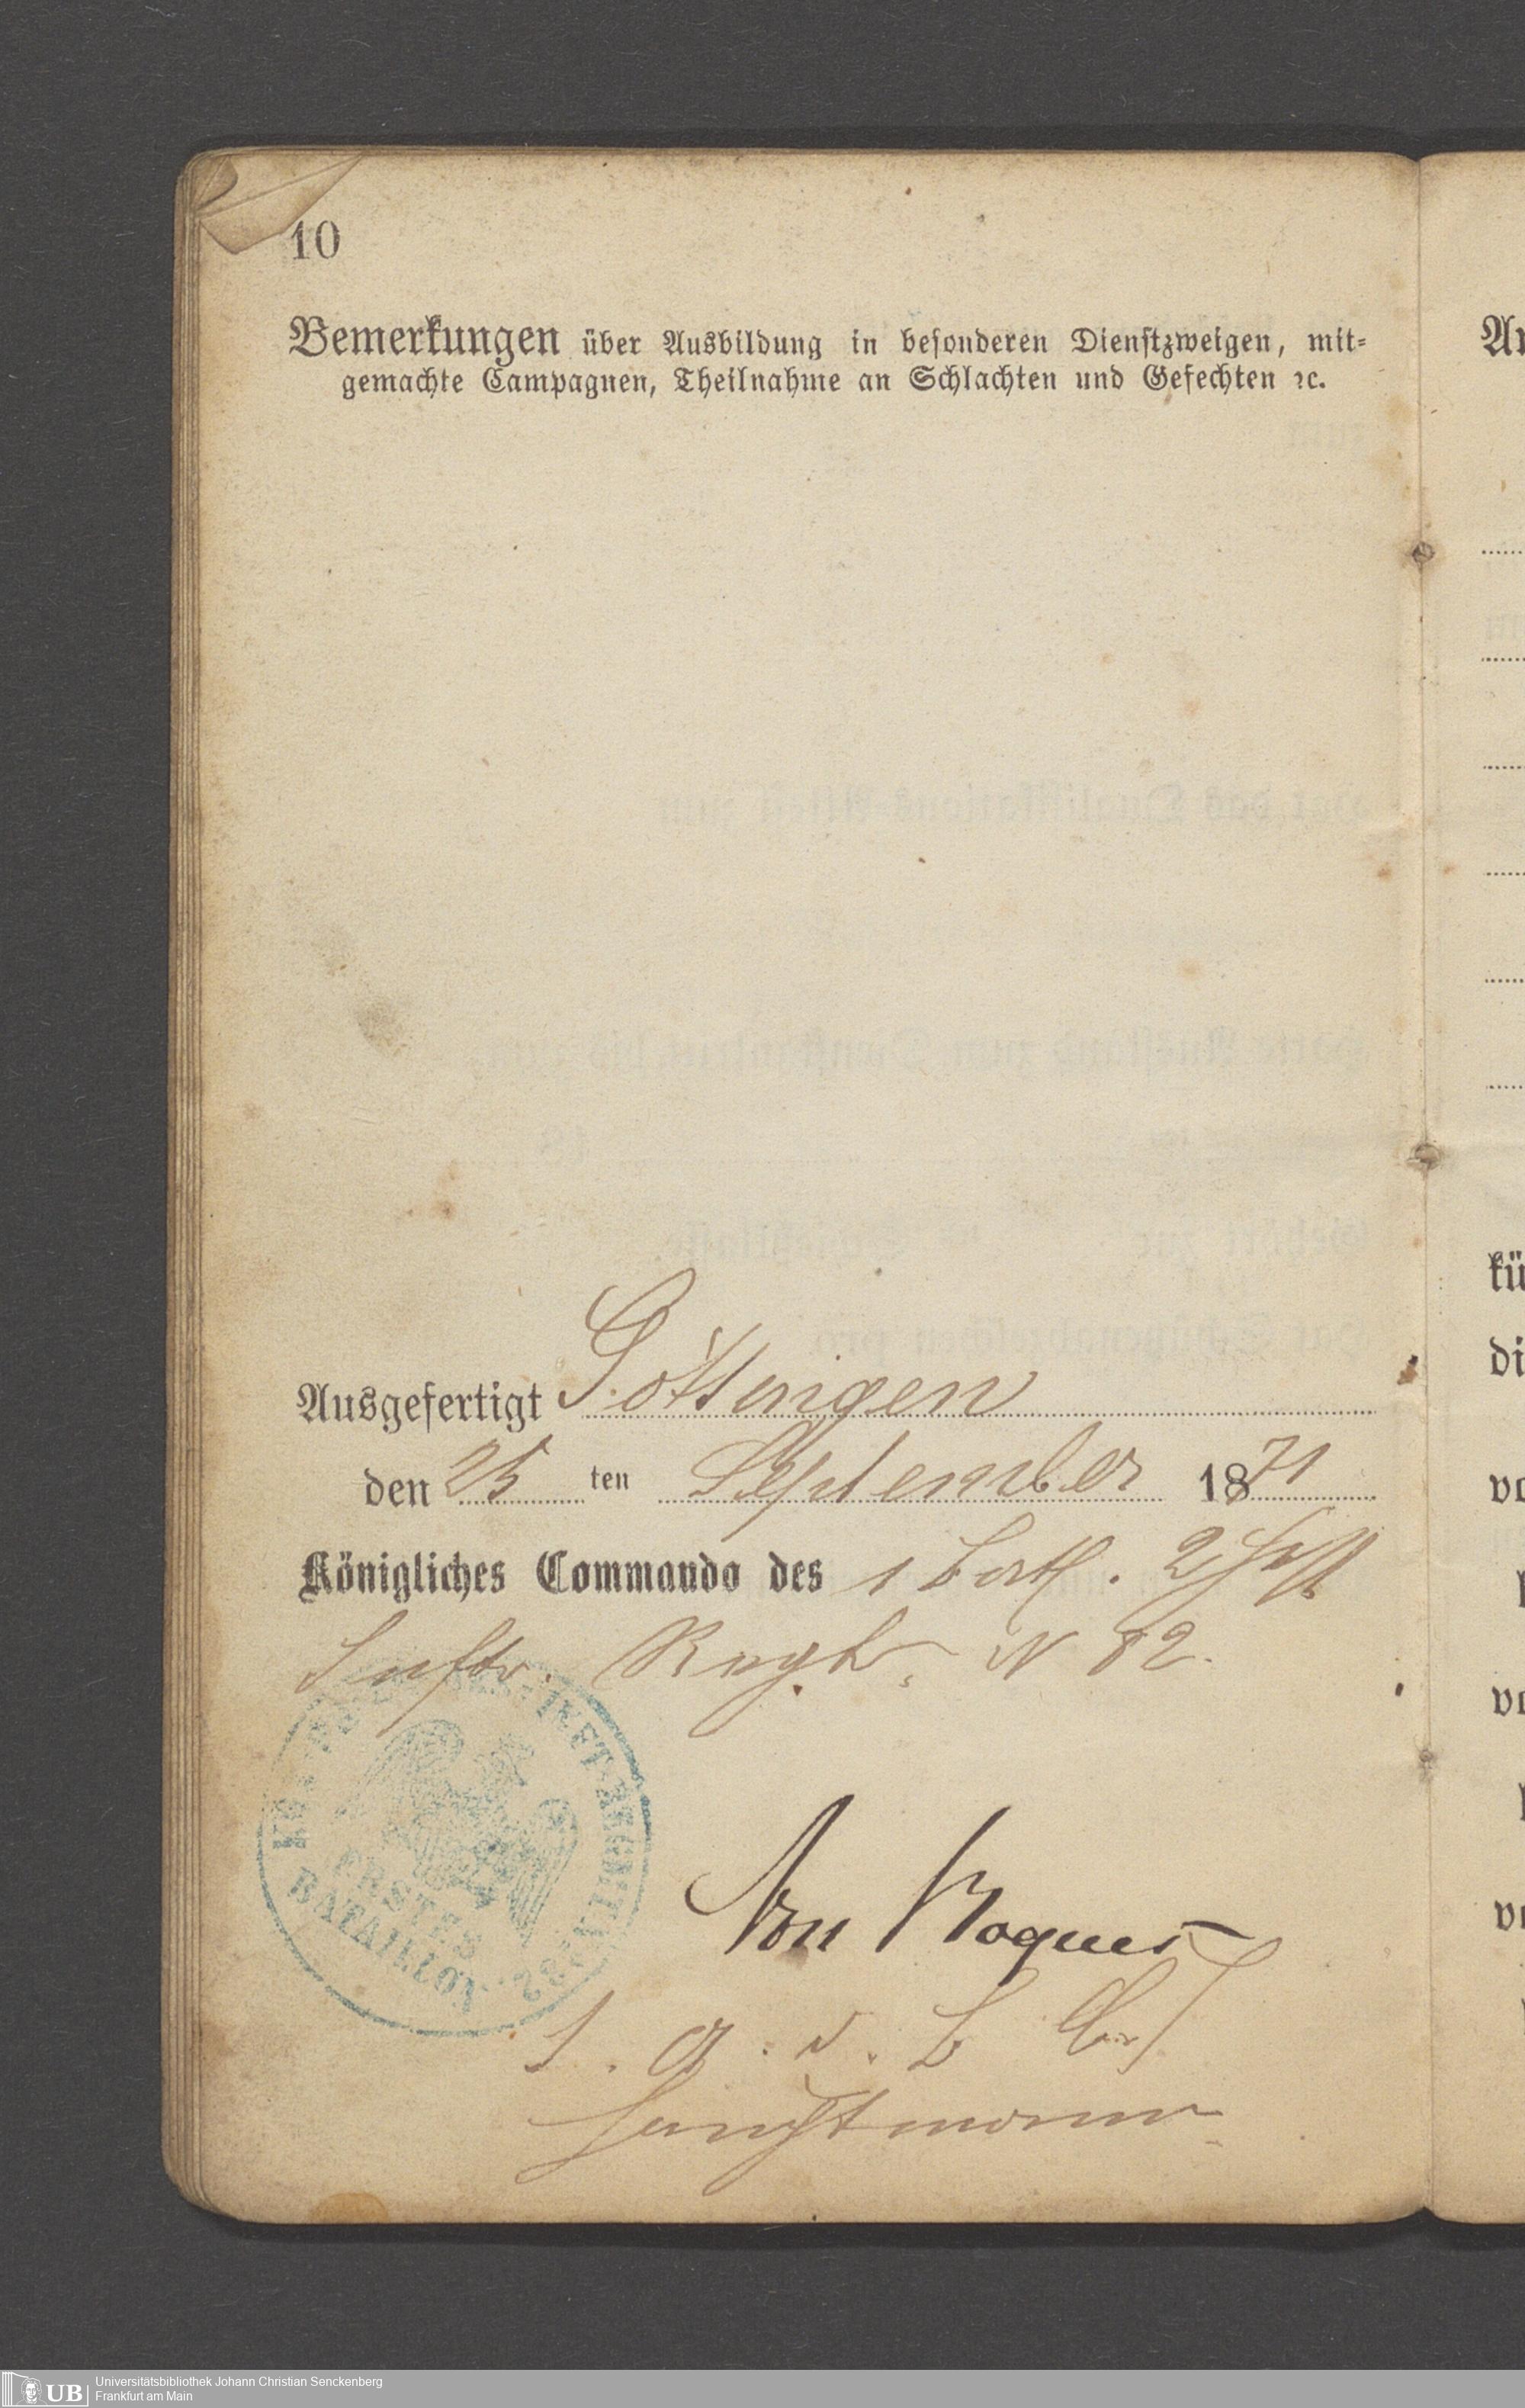 10
Bemerkungen über Ausbildung in besonderen Dienstzweigen, mit-
gemachte Campagnen, Theilnahme an Schlachten und Gefechten ꝛc.
Ausgefertigt Göttingen
den 25 ten September 1871
Königliches Commando des 1 Batl. 2 Hess
Inftr. Regts. N 82.
ERSTES
BATAILLON
Von Roques
Hauptmann
Universitätsbibliothek Johann Christian Senckenberg
UB Frankfurt am Main